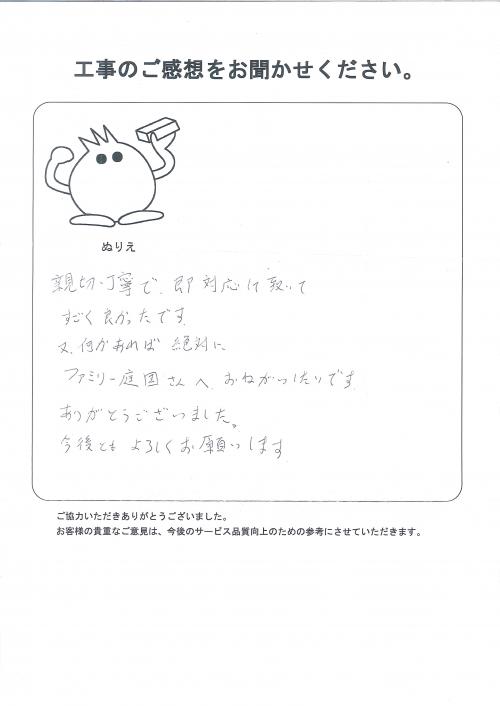 工事のご感想をお聞かせください。
ぬりえ
親切、丁寧で、即対応して頂いて
すごく良かったです。
又、何かあれば 絶対に
ファミリー庭園さんへ、おねがいしたいです
ありがとうございました。
今後とも よろしくお願いします
ご協力いただきありがとうございました。
お客様の貴重なご意見は、今後のサービス品質向上のための参考にさせていただきます。